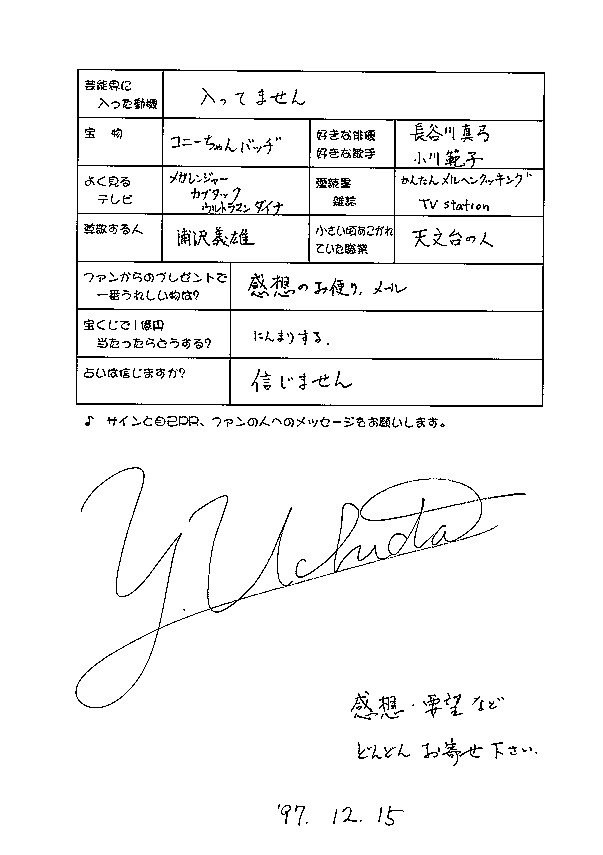 芸能界に
入った動機
入ってません
宝 物
コニーちゃんバッヂ
好きな俳優
好きな歌手
長谷川真弓
小川範子
よく見る
テレビ
メガレンジャー
カブタック
ウルトラマンダイナ
愛読書
雑誌
かんたんメルヘンクッキング
TV station
尊敬する人
浦沢義雄
小さい頃あこがれ
ていた職業
天文台の人
ファンからのプレゼントで
一番うれしい物は?
感想のお便り、メール
宝くじで1億円
当たったらどうする?
にんまりする.
占いは信じますか?
信じません
♪ サインと自己PR、ファンの人へのメッセージをお願いします。
Y. Uchida
感想・要望など
どんどんお寄せ下さい.
'97. 12. 15